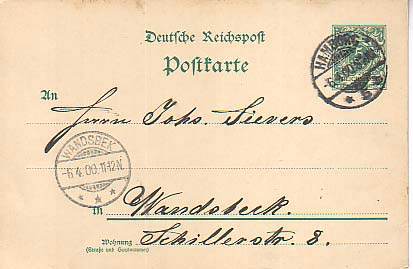 Deutsche Reichspost
Postkarte
HAMBURG
-6.4.00.
An
Herrn Johs. Sievers
WANDSBEK
-6.4.00.11-12.N.
in Wandsbeck.
Wohnung Schillerstr. 8.
(Straße und Hausnummer)